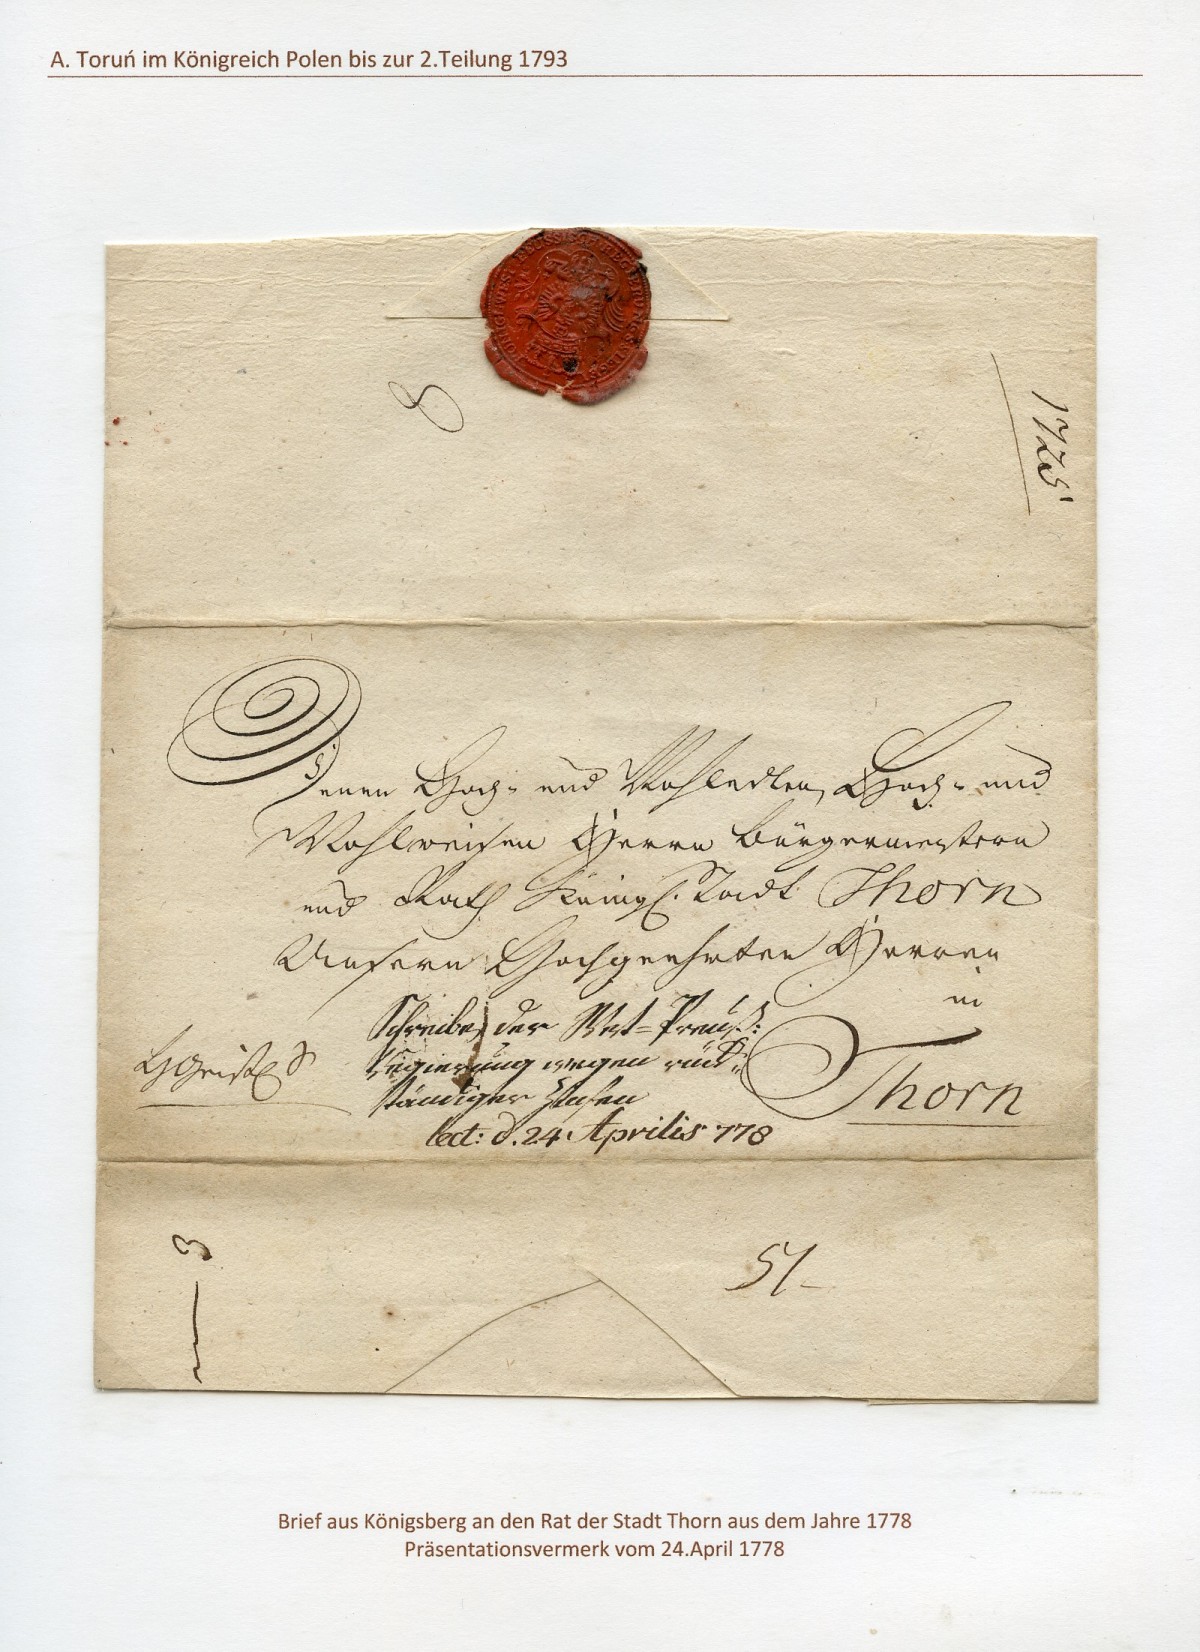 A. Toruń im Königreich Polen bis zur 2.Teilung 1793
8
1725
Denen Hoch- und Wohledlen, Hoch- und
Wohlweisen Herrn Bürgermeistern
und Rath Königl. Stadt Thorn
Unsern Hochgeehrten Herren
in
Thorn
Schreiben der West-Preuß:
Regierung wegen rück-
ständiger Zinsen
lect: d. 24. Aprilis 778
3
51
Brief aus Königsberg an den Rat der Stadt Thorn aus dem Jahre 1778
Präsentationsvermerk vom 24.April 1778